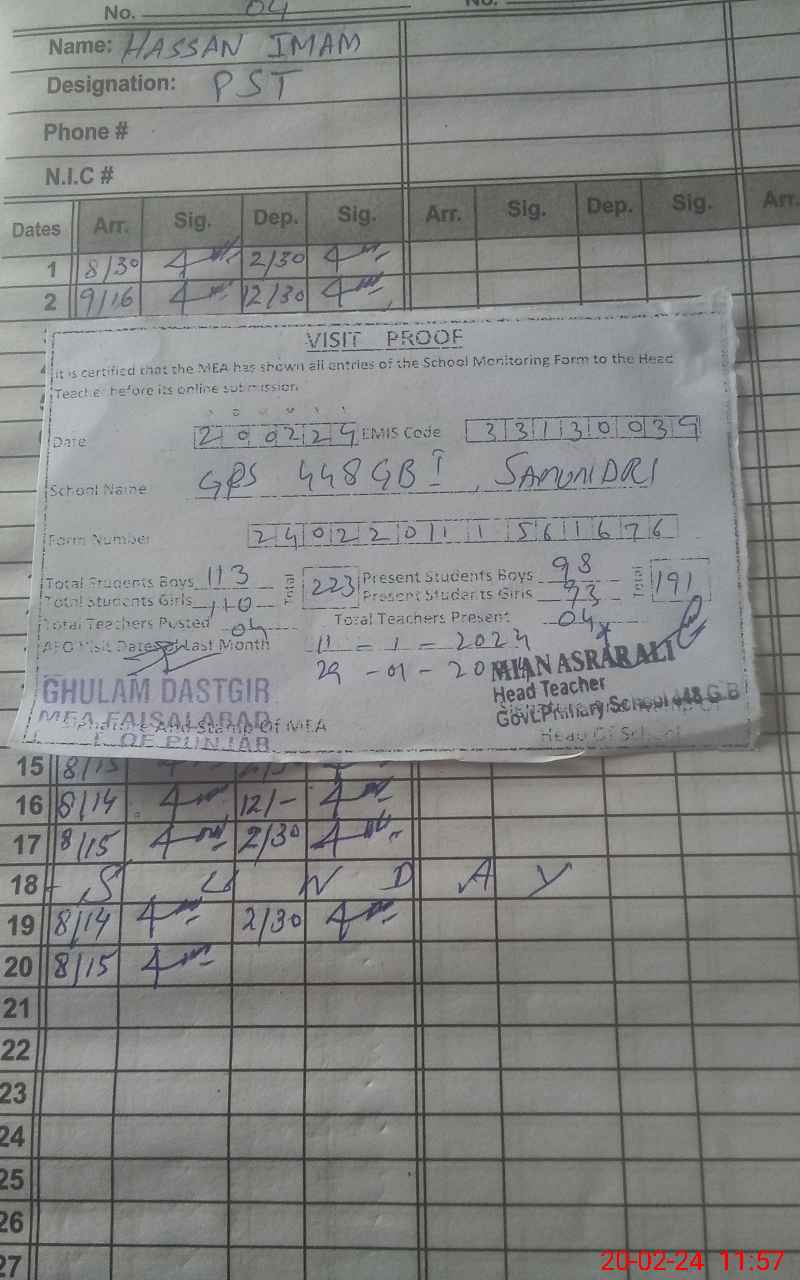 No. 04 No.
Name: HASSAN IMAM
Designation: PST
Phone #
N.I.C #
Dates Arr. Sig. Dep. Sig. Arr. Sig. Dep. Sig. Arr.
1 8/30 2/30
2 9/16 12/30
VISIT PROOF
It is certified that the MEA has shown all entries of the School Monitoring Form to the Head
Teacher before its online submission.
Date 200224 EMIS Code 33130039
School Name GPS 448 GB I, SAMUNDRI
Form Number 24022011561676
Total Students Boys 113 Total 223 Present Students Boys 98 Total 191
Total Students Girls 110 Present Students Girls 93
Total Teachers Posted 04 Total Teachers Present 04
AEO Visit Dates Of Last Month 11-1-2024
29-01-20
MIAN ASRAR ALI
GHULAM DASTGIR Head Teacher
MEA FAISALABAD Govt. Primary School 448 G.B
And Stamp Of MEA Head Of School
OF PUNJAB
15 8/15
16 8/14 12/-
17 8/15 2/30
18 SUNDAY
19 8/14 2/30
20 8/15
21
22
23
24
25
26
27
20-02-24 11:57